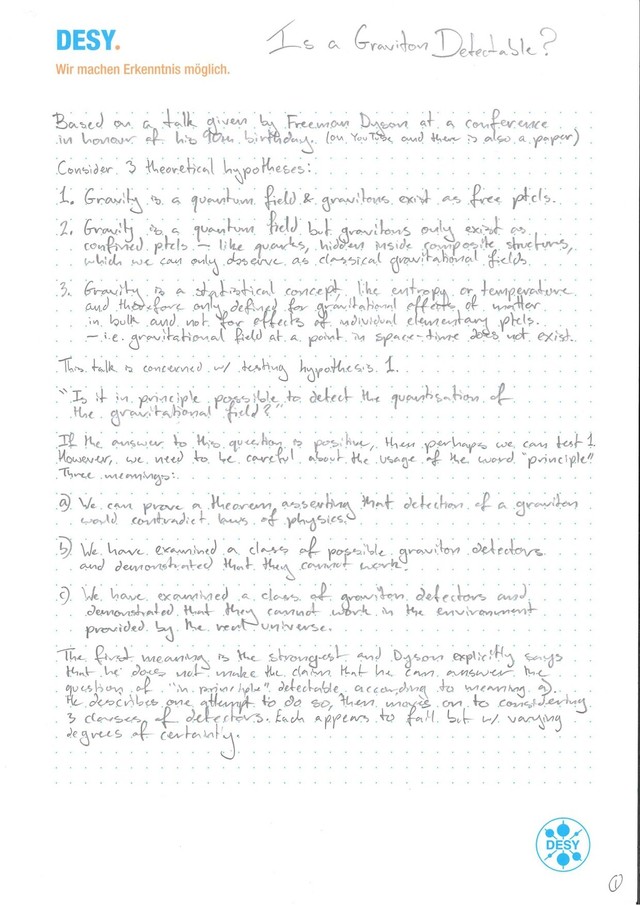 DESY.
Is a Graviton Detectable?
Wir machen Erkenntnis möglich.
Based on a talk given by Freeman Dyson at a conference
in honour of his 90th birthday. (on YouTube and there is also a paper)
Consider 3 theoretical hypotheses:
1. Gravity is a quantum field & gravitons exist as free ptcls.
2. Gravity is a quantum field but gravitons only exist as
confined ptcls – like quarks, hidden inside composite structures,
which we can only observe as classical gravitational fields.
3. Gravity is a statistical concept, like entropy or temperature
and therefore only defined for gravitational effects of matter
in bulk and not for effects of individual elementary ptcls.
– i.e. gravitational field at a point in space-time does not exist.
This talk is concerned w/ testing hypothesis 1.
"Is it in principle possible to detect the quantisation of
the gravitational field?"
If the answer to this question is positive, then perhaps we can test 1
However, we need to be careful about the usage of the word "principle"
Three meanings:
a) We can prove a theorem asserting that detection of a graviton
would contradict laws of physics.
b) We have examined a class of possible graviton detectors
and demonstrated that they cannot work
c) We have examined a class of graviton detectors and
demonstrated that they cannot work in the environment
provided by the real universe.
The first meaning is the strongest and Dyson explicitly says
that he does not make the claim that he can answer the
question of "in principle" detectable according to meaning a).
He describes one attempt to do so, then moves on to considering
3 classes of detectors. Each appears to fail but w/ varying
degrees of certainty.
DESY
1